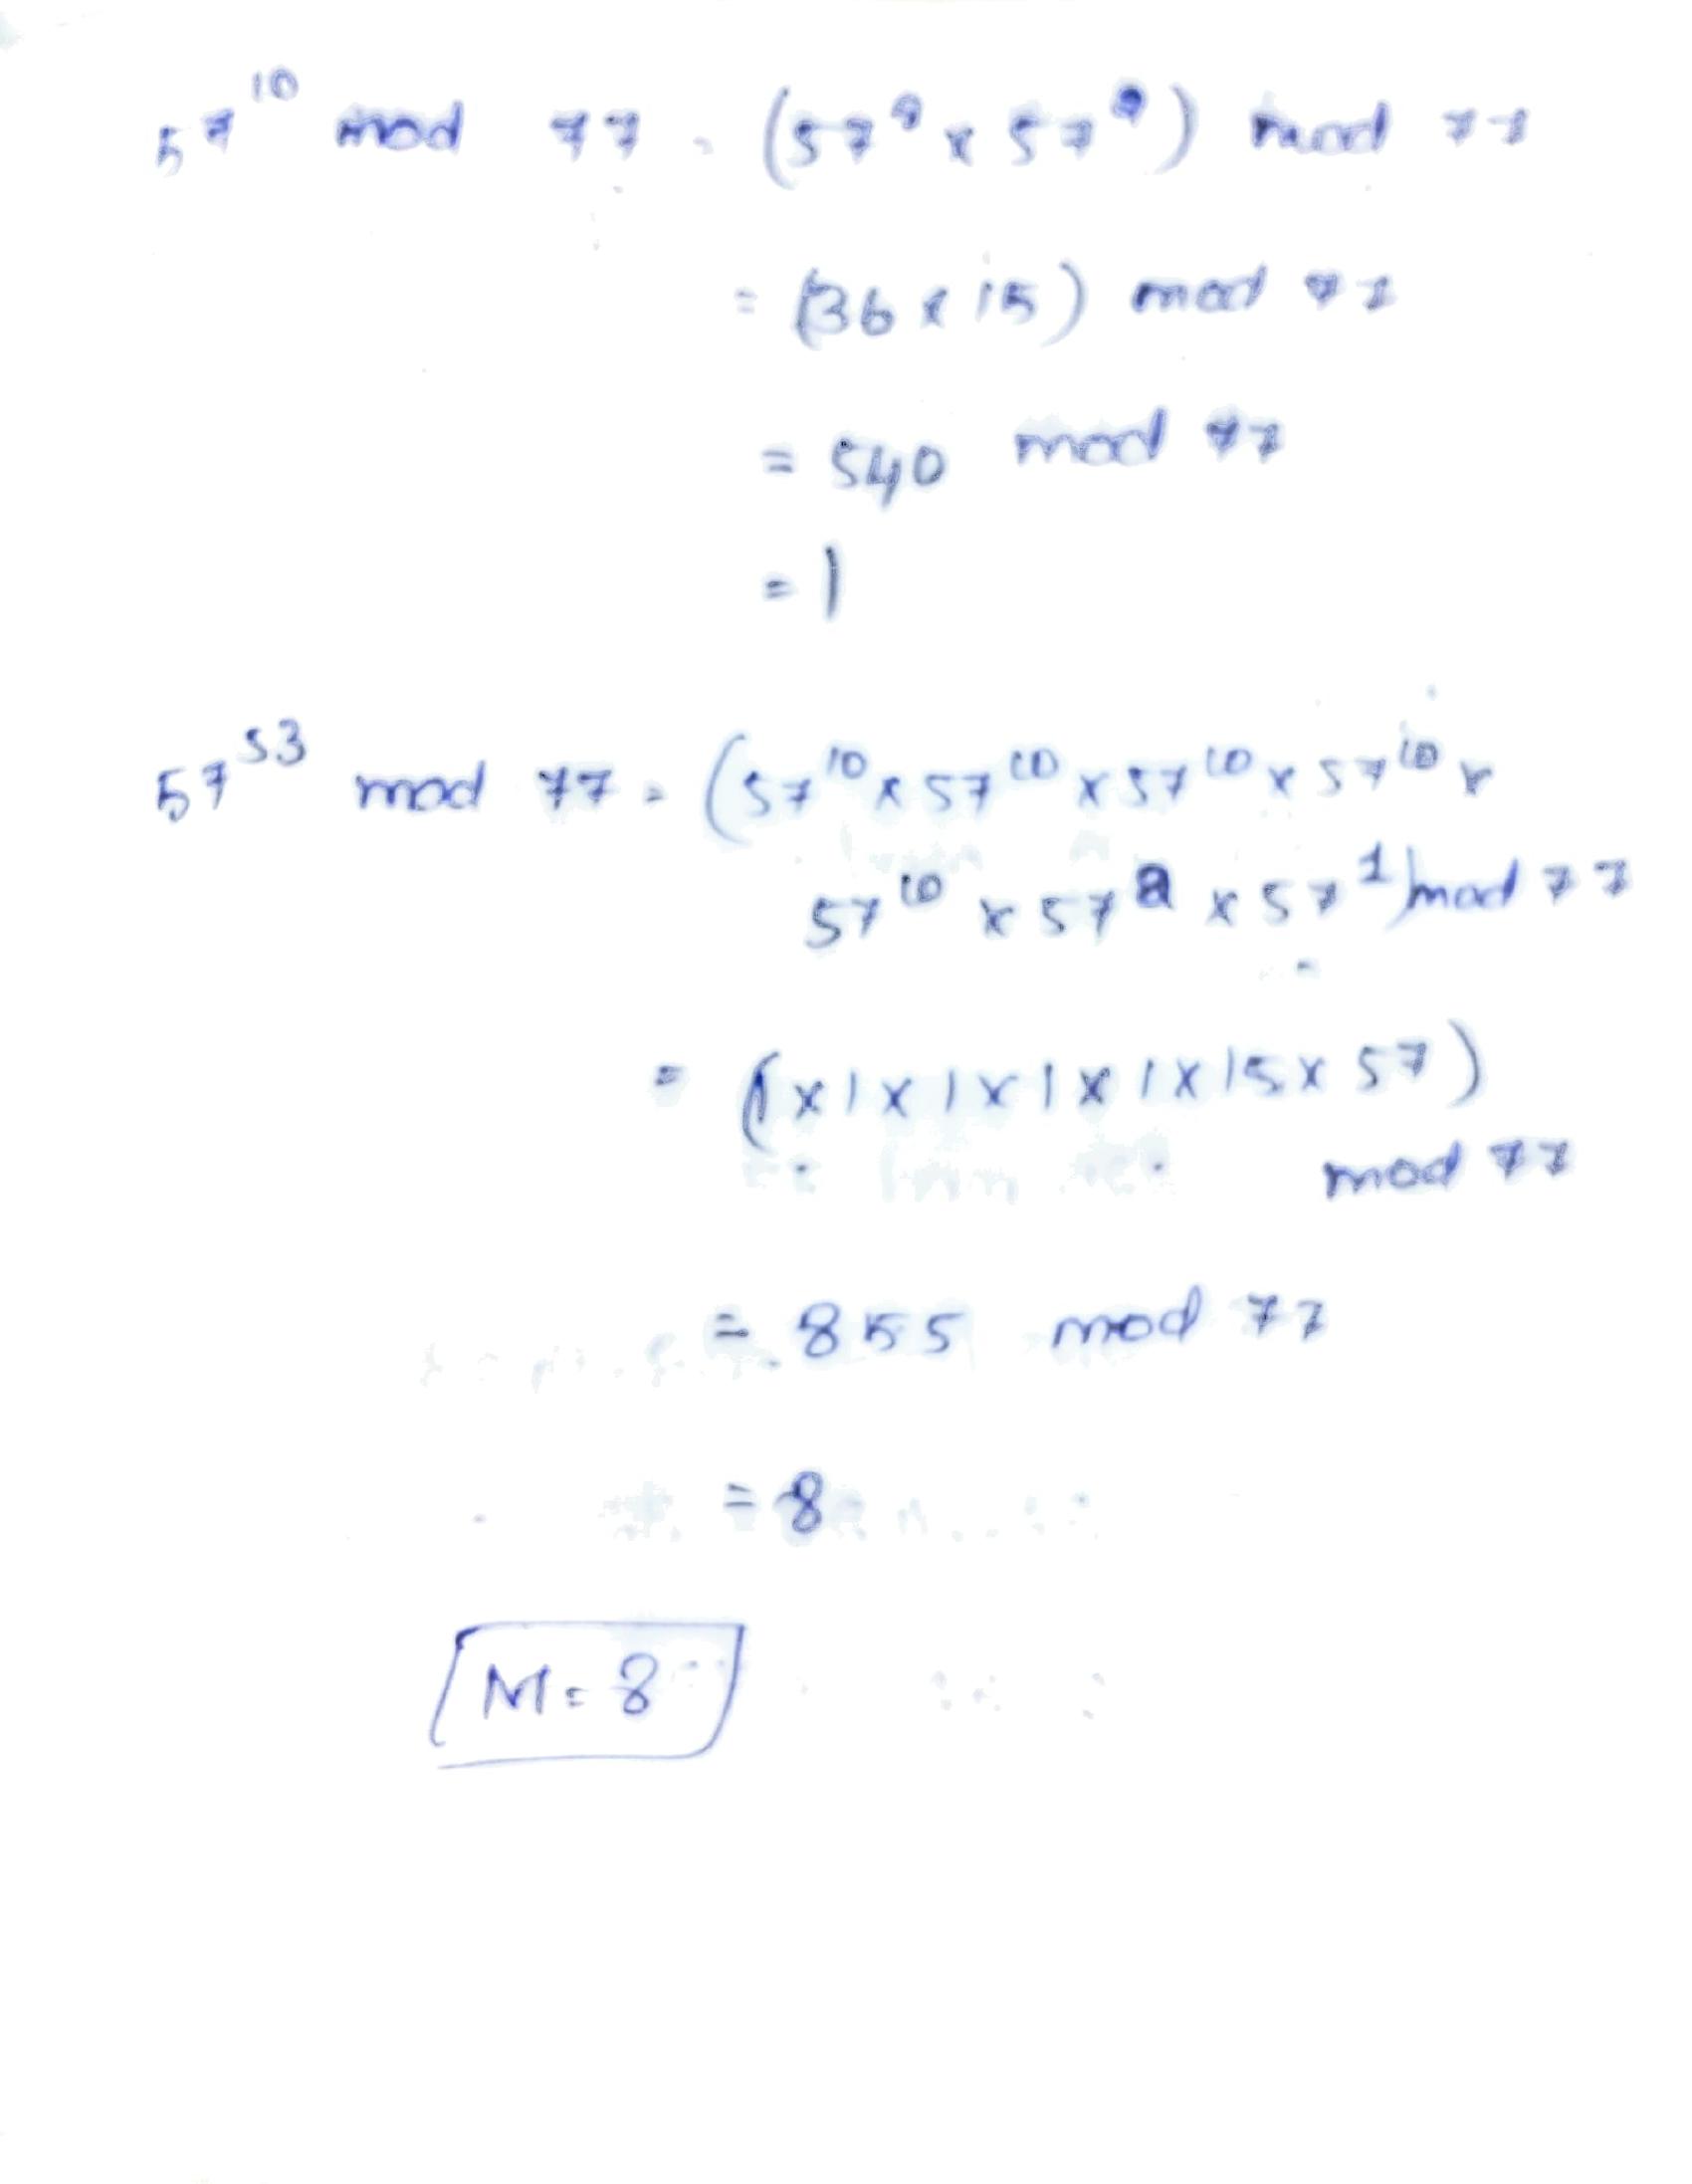 57^10 mod 77 = (57^8 x 57^2) mod 77
= (36 x 15) mod 77
= 540 mod 77
= 1
57^53 mod 77 = (57^10 x 57^10 x 57^10 x 57^10 x
57^10 x 57^2 x 57^1) mod 77
= (1 x 1 x 1 x 1 x 1 x 15 x 57)
mod 77
= 855 mod 77
= 8
M = 8